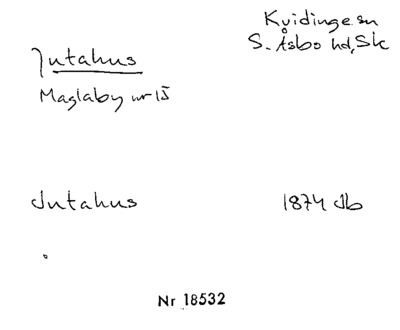 Kvidinge sn
S. Åsbo hd, Sk
Jutahus
Maglaby nr 15
Jutahus 1874 Jb
Nr 18532